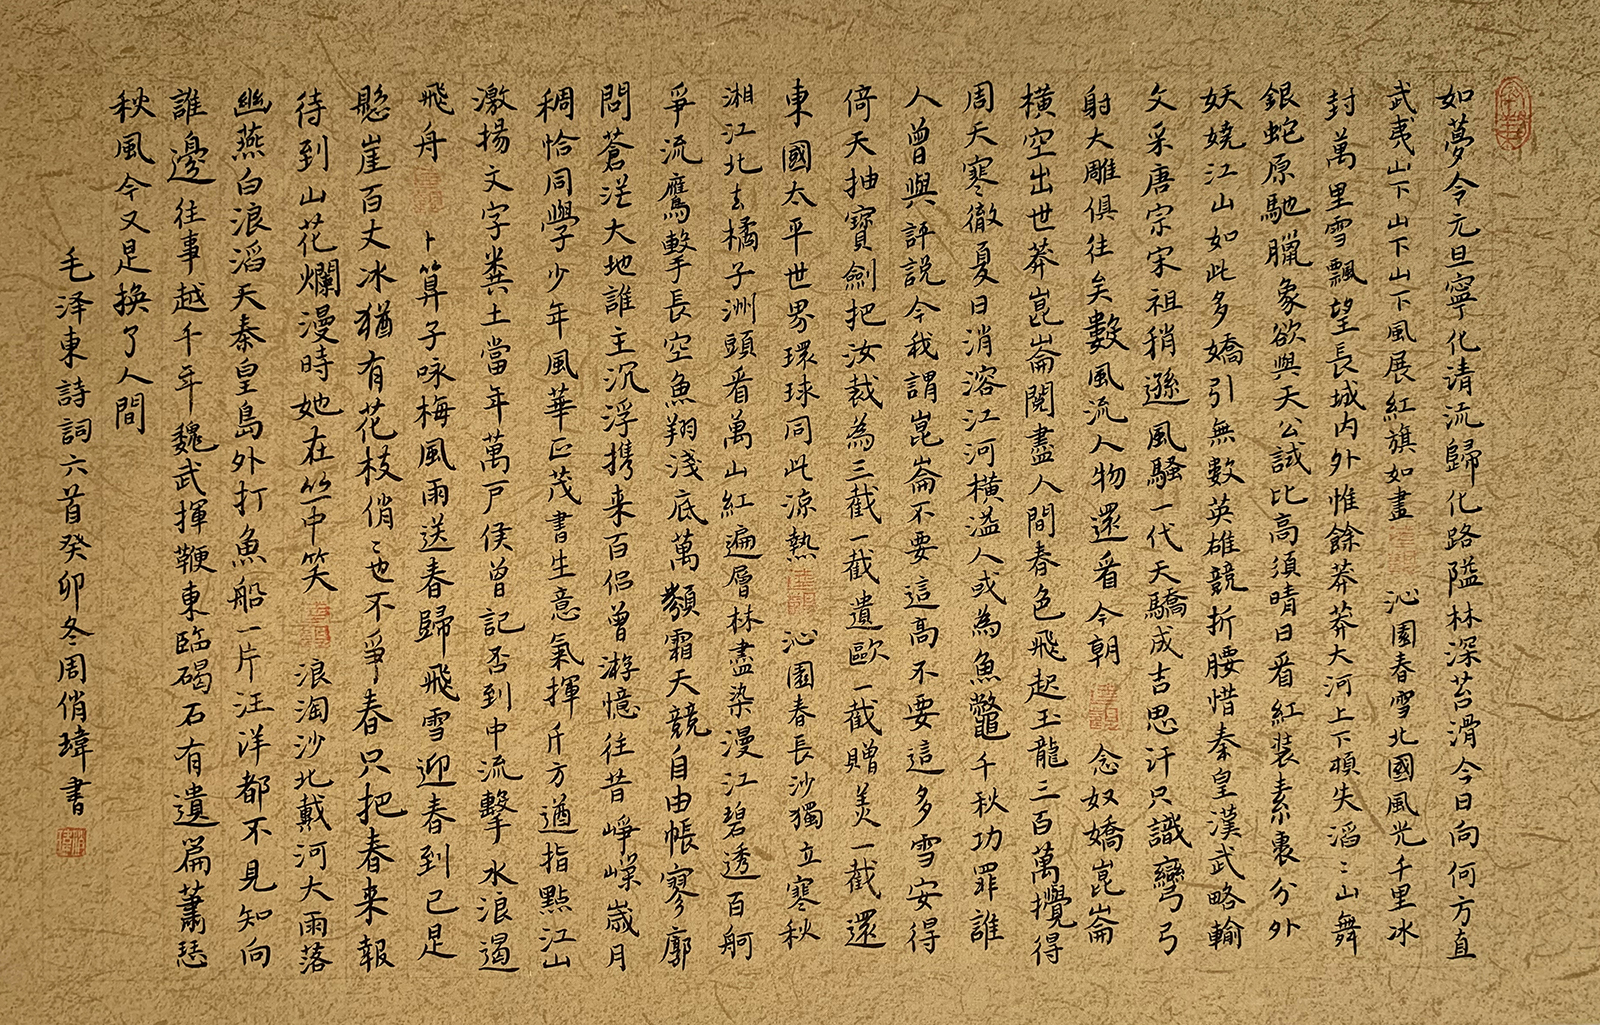 如夢令元旦寧化清流歸化路隘林深苔滑今日向何方直
武夷山下山下山下風展紅旗如畫 沁園春雪北國風光千里冰
封萬里雪飄望長城内外惟餘莽莽大河上下頓失滔〻山舞
銀蛇原馳臘象欲與天公試比高須晴日看紅裝素裹分外
妖嬈江山如此多嬌引無數英雄競折腰惜秦皇漢武略輸
文采唐宗宋祖稍遜風騷一代天驕成吉思汗只識彎弓
射大雕俱往矣數風流人物還看今朝 念奴嬌崑崙
横空出世莽崑崙閱盡人間春色飛起玉龍三百萬攪得
周天寒徹夏日消溶江河横溢人或為魚鱉千秋功罪誰
人曾與評説今我謂崑崙不要這高不要這多雪安得
倚天抽寶劍把汝裁為三截一截遺歐一截贈美一截還
東國太平世界環球同此涼熱 沁園春長沙獨立寒秋
湘江北去橘子洲頭看萬山紅遍層林盡染漫江碧透百舸
爭流鷹擊長空魚翔淺底萬類霜天競自由悵寥廓
問蒼茫大地誰主沉浮携来百侣曾游憶往昔崢嶸歲月
稠恰同學少年風華正茂書生意氣揮斥方遒指點江山
激揚文字糞土當年萬戶侯曾記否到中流擊水浪遏
飛舟 卜算子咏梅風雨送春歸飛雪迎春到已是
懸崖百丈冰猶有花枝俏俏〻也不爭春只把春来報
待到山花爛漫時她在丛中笑 浪淘沙北戴河大雨落
幽燕白浪滔天秦皇島外打魚船一片汪洋都不見知向
誰邊往事越千年魏武揮鞭東臨碣石有遺篇蕭瑟
秋風今又是换了人間
毛泽東詩詞六首癸卯冬周俏瑋書